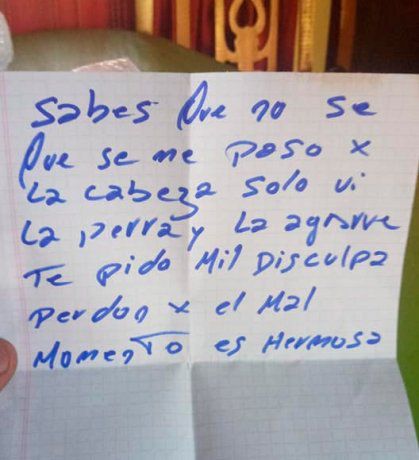 Sabes Que no se
Que se me paso x
La cabeza solo vi
La perra y La agarre
Te pido Mil Disculpa
perdon x el Mal
Momento es Hermosa